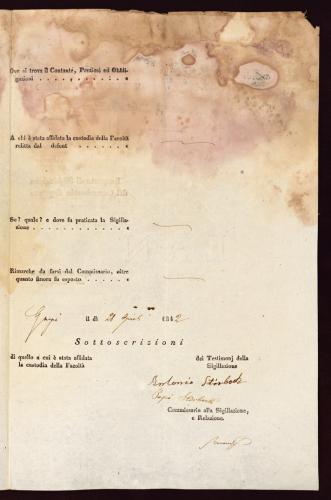 Ove si trova il Contante, Preziosi ed Obbli-
gazioni
A chi è stata affidata la custodia della Facoltà
relitta dal defunt
Se? quale? e dove fu praticata la Sigilla-
zione
Rimarche da farsi dal Commissario, oltre
quanto finora fu esposto
il dì 21 1842
Sottoscrizioni
di quello a cui è stata affidata
la custodia della Facoltà
dei Testimonj della
Sigillazione
Antonio
Commissario alla Sigillazione,
e Relazione.